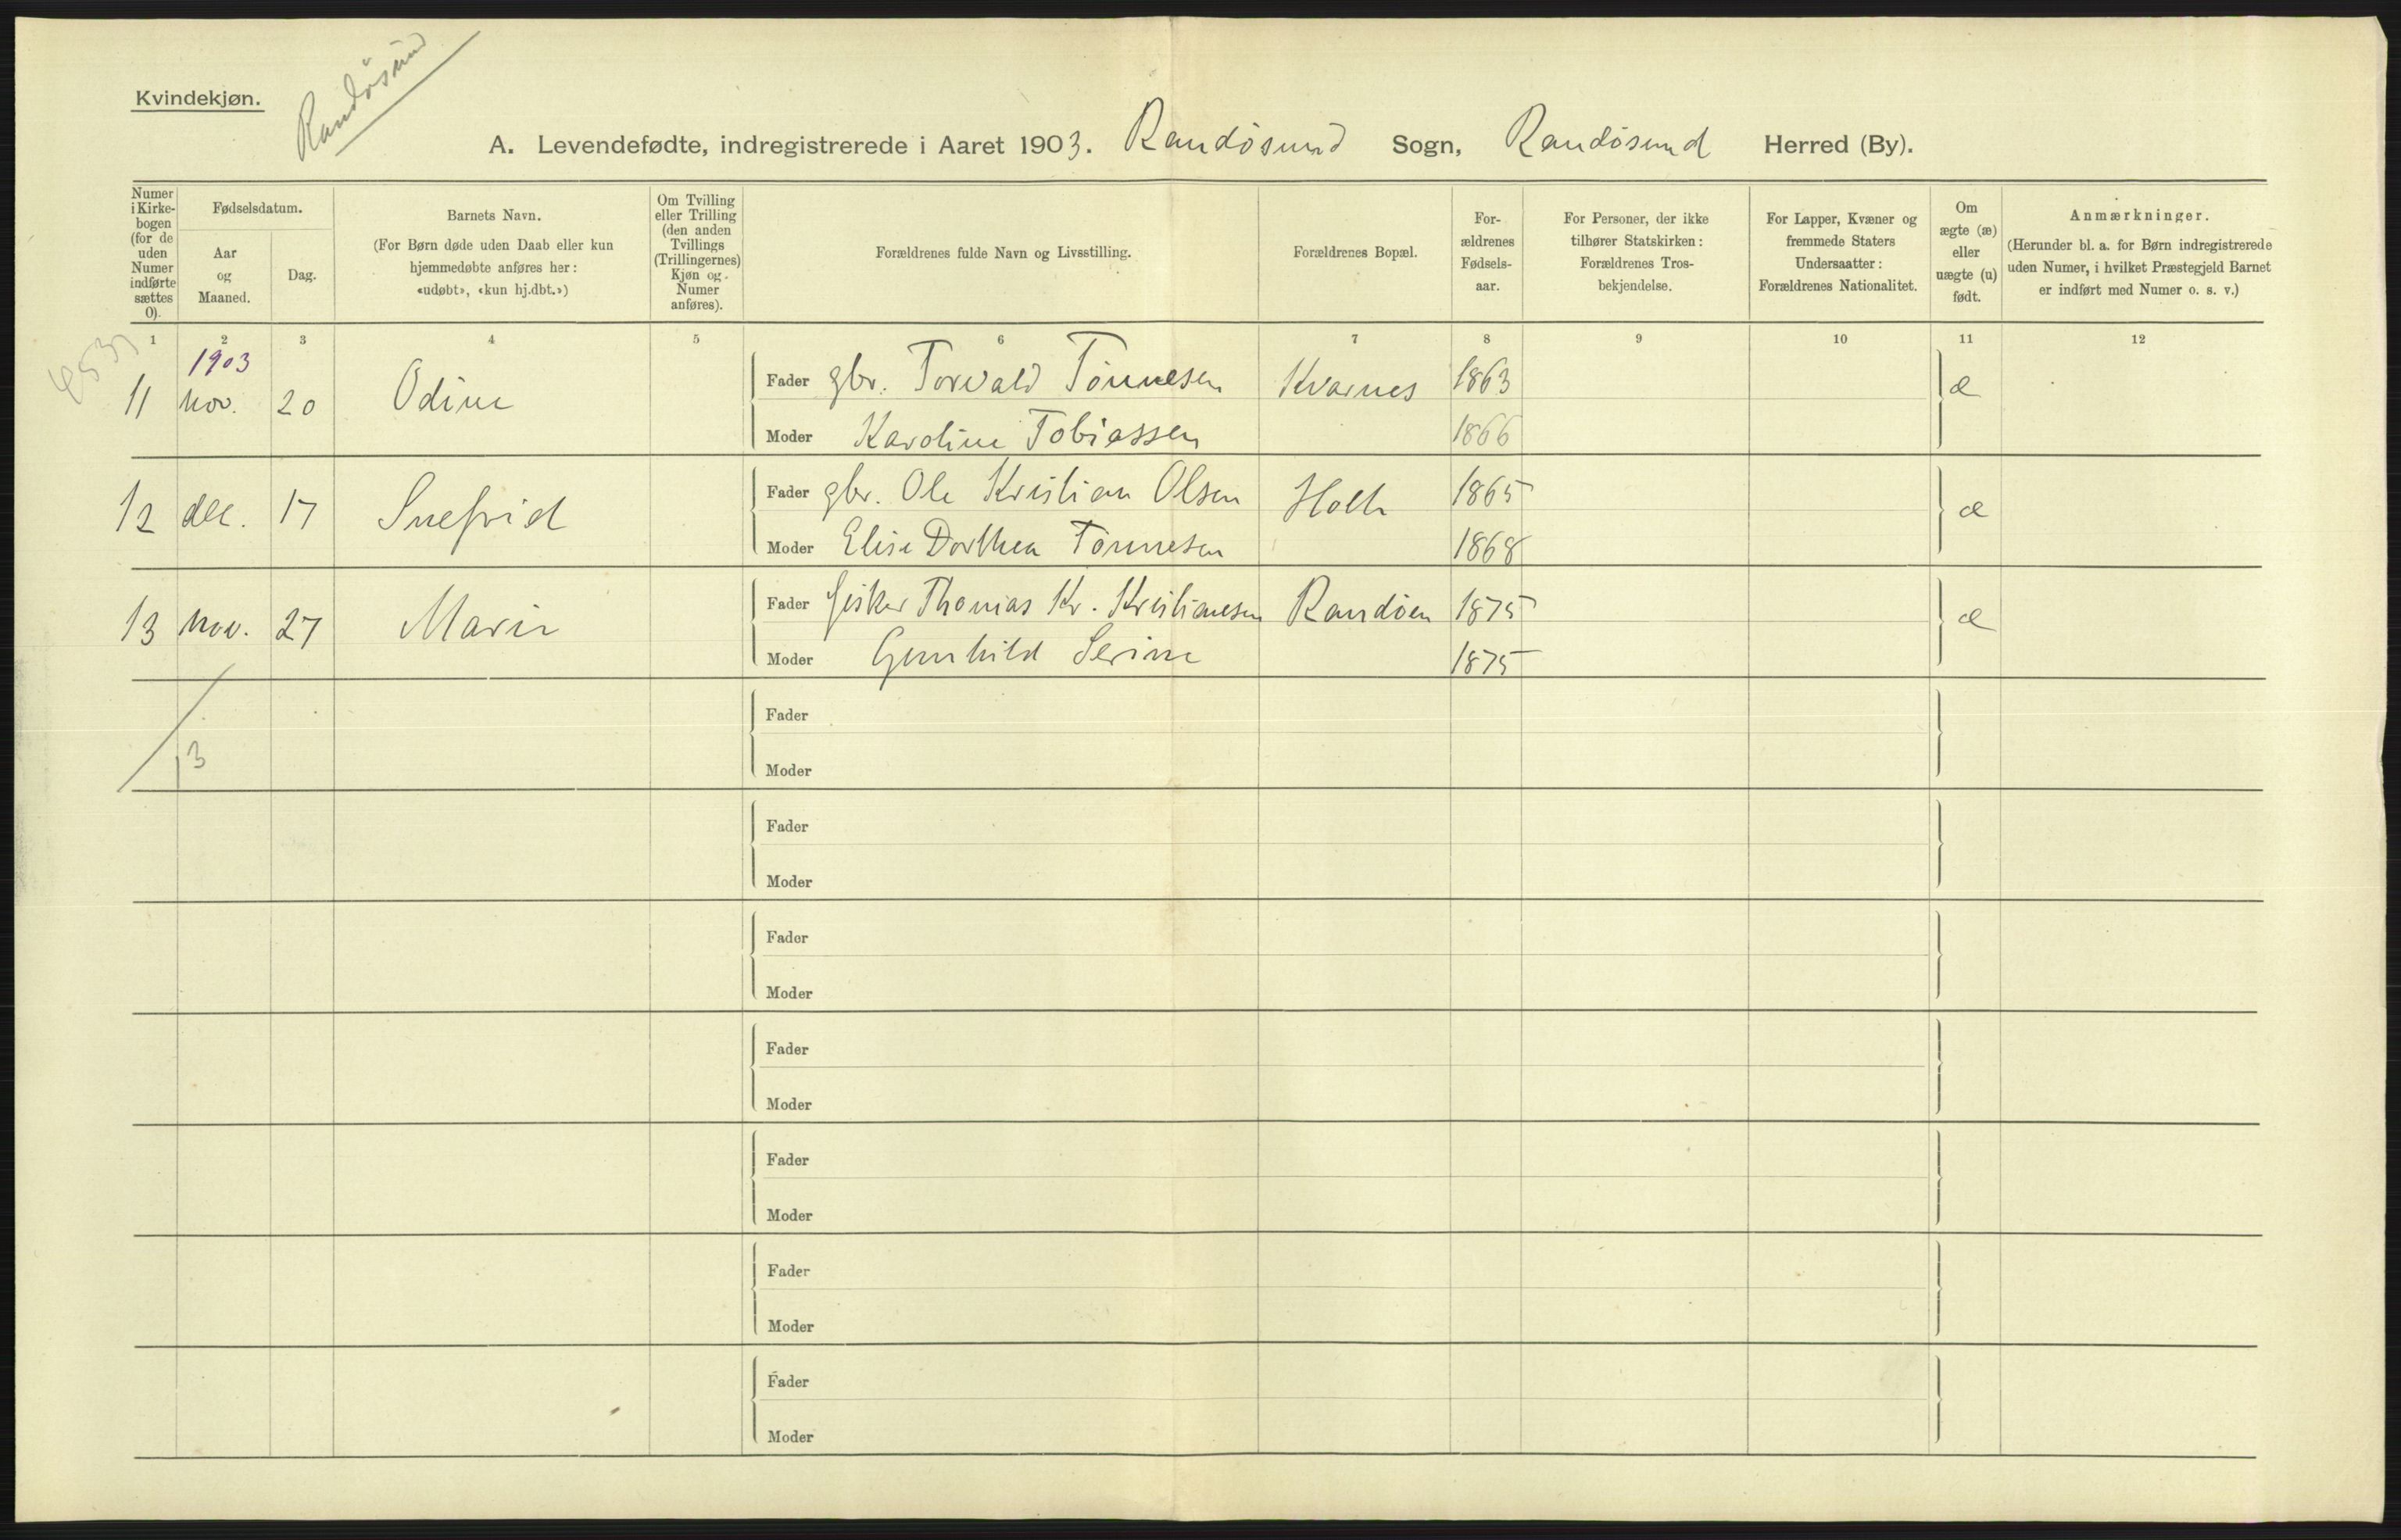 Randøsund
Kvindekjøn.
A. Levendefødte, indregistrerede i Aaret 1903. Randøsund Sogn, Randøsund Herred (By).
Numer i Kirke-bogen (for de uden Numer indførte sættes 0).
Fødselsdatum.
Aar og Maaned.
Dag.
Barnets Navn.
(For Børn døde uden Daab eller kun hjemmedøbte anføres her: «udøbt», «kun hj.dbt.»)
Om Tvilling eller Trilling (den anden Tvillings (Trillingernes) Kjøn og Numer anføres).
Forældrenes fulde Navn og Livsstilling.
Forældrenes Bopæl.
For-ældrenes Fødsels-aar.
For Personer, der ikke tilhører Statskirken: Forældrenes Tros-bekjendelse.
For Lapper, Kvæner og fremmede Staters Undersaatter: Forældrenes Nationalitet.
Om ægte (æ) eller uægte (u) født.
Anmærkninger.
(Herunder bl. a. for Børn indregistrerede uden Numer, i hvilket Præstegjeld Barnet er indført med Numer o. s. v.)
1 2 3 4 5 6 7 8 9 10 11 12
1903
11 nov. 20 Odine Fader gbr. Torvald Tønnesen Kvarnes 1863 æ
Moder Karoline Tobiassen 1866
12 dec. 17 Snefrid Fader gbr. Ole Kristian Olsen Holte 1865 æ
Moder Elise Dorthea Tønnesen 1868
13 nov. 27 Marie Fader fisker Thomas Kr. Kristiansen Randøen 1875 æ
Moder Gunhild Serine 1875
Fader
13
Moder
Fader
Moder
Fader
Moder
Fader
Moder
Fader
Moder
Fader
Moder
Fader
Moder